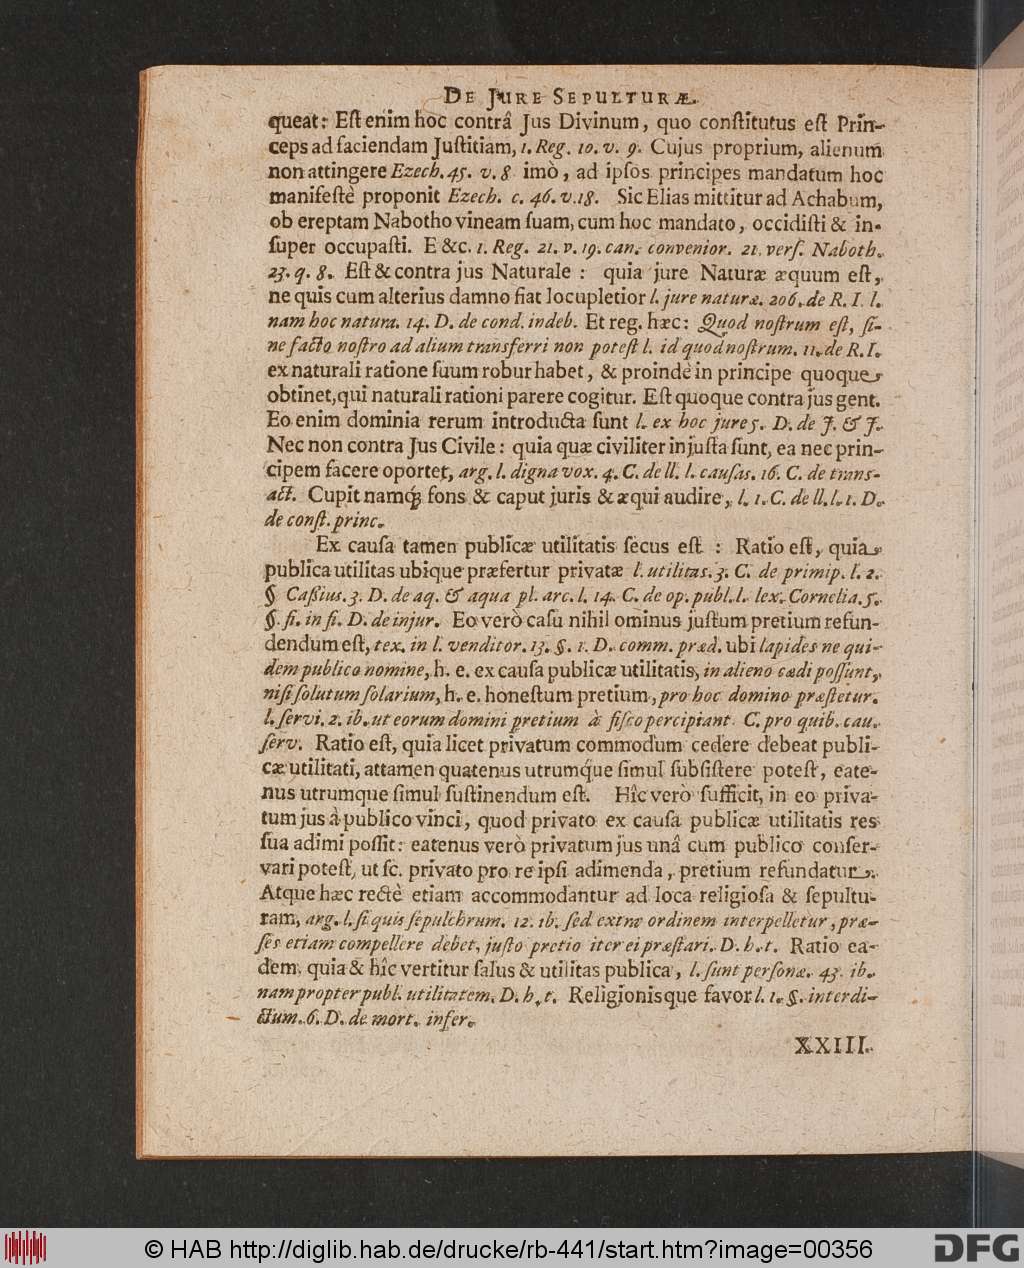 DE JURE SEPULTURÆ.
queat: Eſt enim hoc contrâ Jus Divinum, quo conſtitutus eſt Prin-
ceps ad faciendam Juſtitiam, 1. Reg. 10. v. 9. Cujus proprium, alienum
non attingere Ezech. 45. v. 8 imò, ad ipſos principes mandatum hoc
manifeſtè proponit Ezech. c. 46. v. 18. Sic Elias mittitur ad Achabum,
ob ereptam Nabotho vineam ſuam, cum hoc mandato, occidiſti & in-
ſuper occupaſti. E &c. 1. Reg. 21. v. 19. can. convenior. 21. verſ. Naboth.
23. q. 8. Eſt & contra jus Naturale : quia jure Naturæ æquum eſt,
ne quis cum alterius damno fiat locupletior l. jure naturæ. 206. de R. I. l.
nam hoc natura. 14. D. de cond. indeb. Et reg. hæc: Quod noſtrum eſt, ſi-
ne facto noſtro ad alium transferri non poteſt l. id quod noſtrum. 11. de R. I.
ex naturali ratione ſuum robur habet, & proindè in principe quoque
obtinet, qui naturali rationi parere cogitur. Eſt quoque contra jus gent.
Eo enim dominia rerum introducta ſunt l. ex hoc jure 5. D. de J. & J.
Nec non contra Jus Civile: quia quæ civiliter injuſta ſunt, ea nec prin-
cipem facere oportet, arg. l. digna vox. 4. C. de ll. l. cauſas. 16. C. de trans-
act. Cupit namq; fons & caput juris & æqui audire, l. 1. C. de ll. l. 1. D.
de conſt. princ.
Ex cauſa tamen publicæ utilitatis ſecus eſt : Ratio eſt, quia
publica utilitas ubique præfertur privatæ l. utilitas. 3. C. de primip. l. 2.
§ Caßius. 3. D. de aq. & aqua pl. arc. l. 14. C. de op. publ. l. lex. Cornelia. 5.
§. ſi. in fi. D. de injur. Eo verò caſu nihil ominus juſtum pretium refun-
dendum eſt, tex. in l. venditor. 13. §. 1. D. comm. præd. ubi lapides ne qui-
dem publico nomine, h. e. ex cauſa publicæ utilitatis, in alieno cædi poſſunt,
niſi ſolutum ſolarium, h. e. honeſtum pretium, pro hoc domino præſtetur.
l. ſervi. 2. ib. ut eorum domini pretium à fiſco percipiant C. pro quib. cau.
ſerv. Ratio eſt, quia licet privatum commodum cedere debeat publi-
cæ utilitati, attamen quatenus utrumque ſimul ſubſiſtere poteſt, eate-
nus utrumque ſimul ſuſtinendum eſt. Hîc verò ſufficit, in eo priva-
tum jus à publico vinci, quod privato ex cauſa publicæ utilitatis res
ſua adimi poſſit: eatenus verò privatum jus unâ cum publico conſer-
vari poteſt, ut ſc. privato pro re ipſi adimenda, pretium refundatur.
Atque hæc rectè etiam accommodantur ad loca religioſa & ſepultu-
ram, arg. l. ſi quis ſepulchrum. 12. ib. ſed extra ordinem interpelletur, præ-
ſes etiam compellere debet, juſto pretio iter ei præſtari. D. h. t. Ratio ea-
dem, quia & hîc vertitur ſalus & utilitas publica, l. ſunt perſonæ. 43. ib.
nam propter publ. utilitatem. D. h. t. Religionisque favor l. 1. §. interdi-
ctum. 6. D. de mort. infer.
XXIII.
© HAB http://diglib.hab.de/drucke/rb-441/start.htm?image=00356
DFG